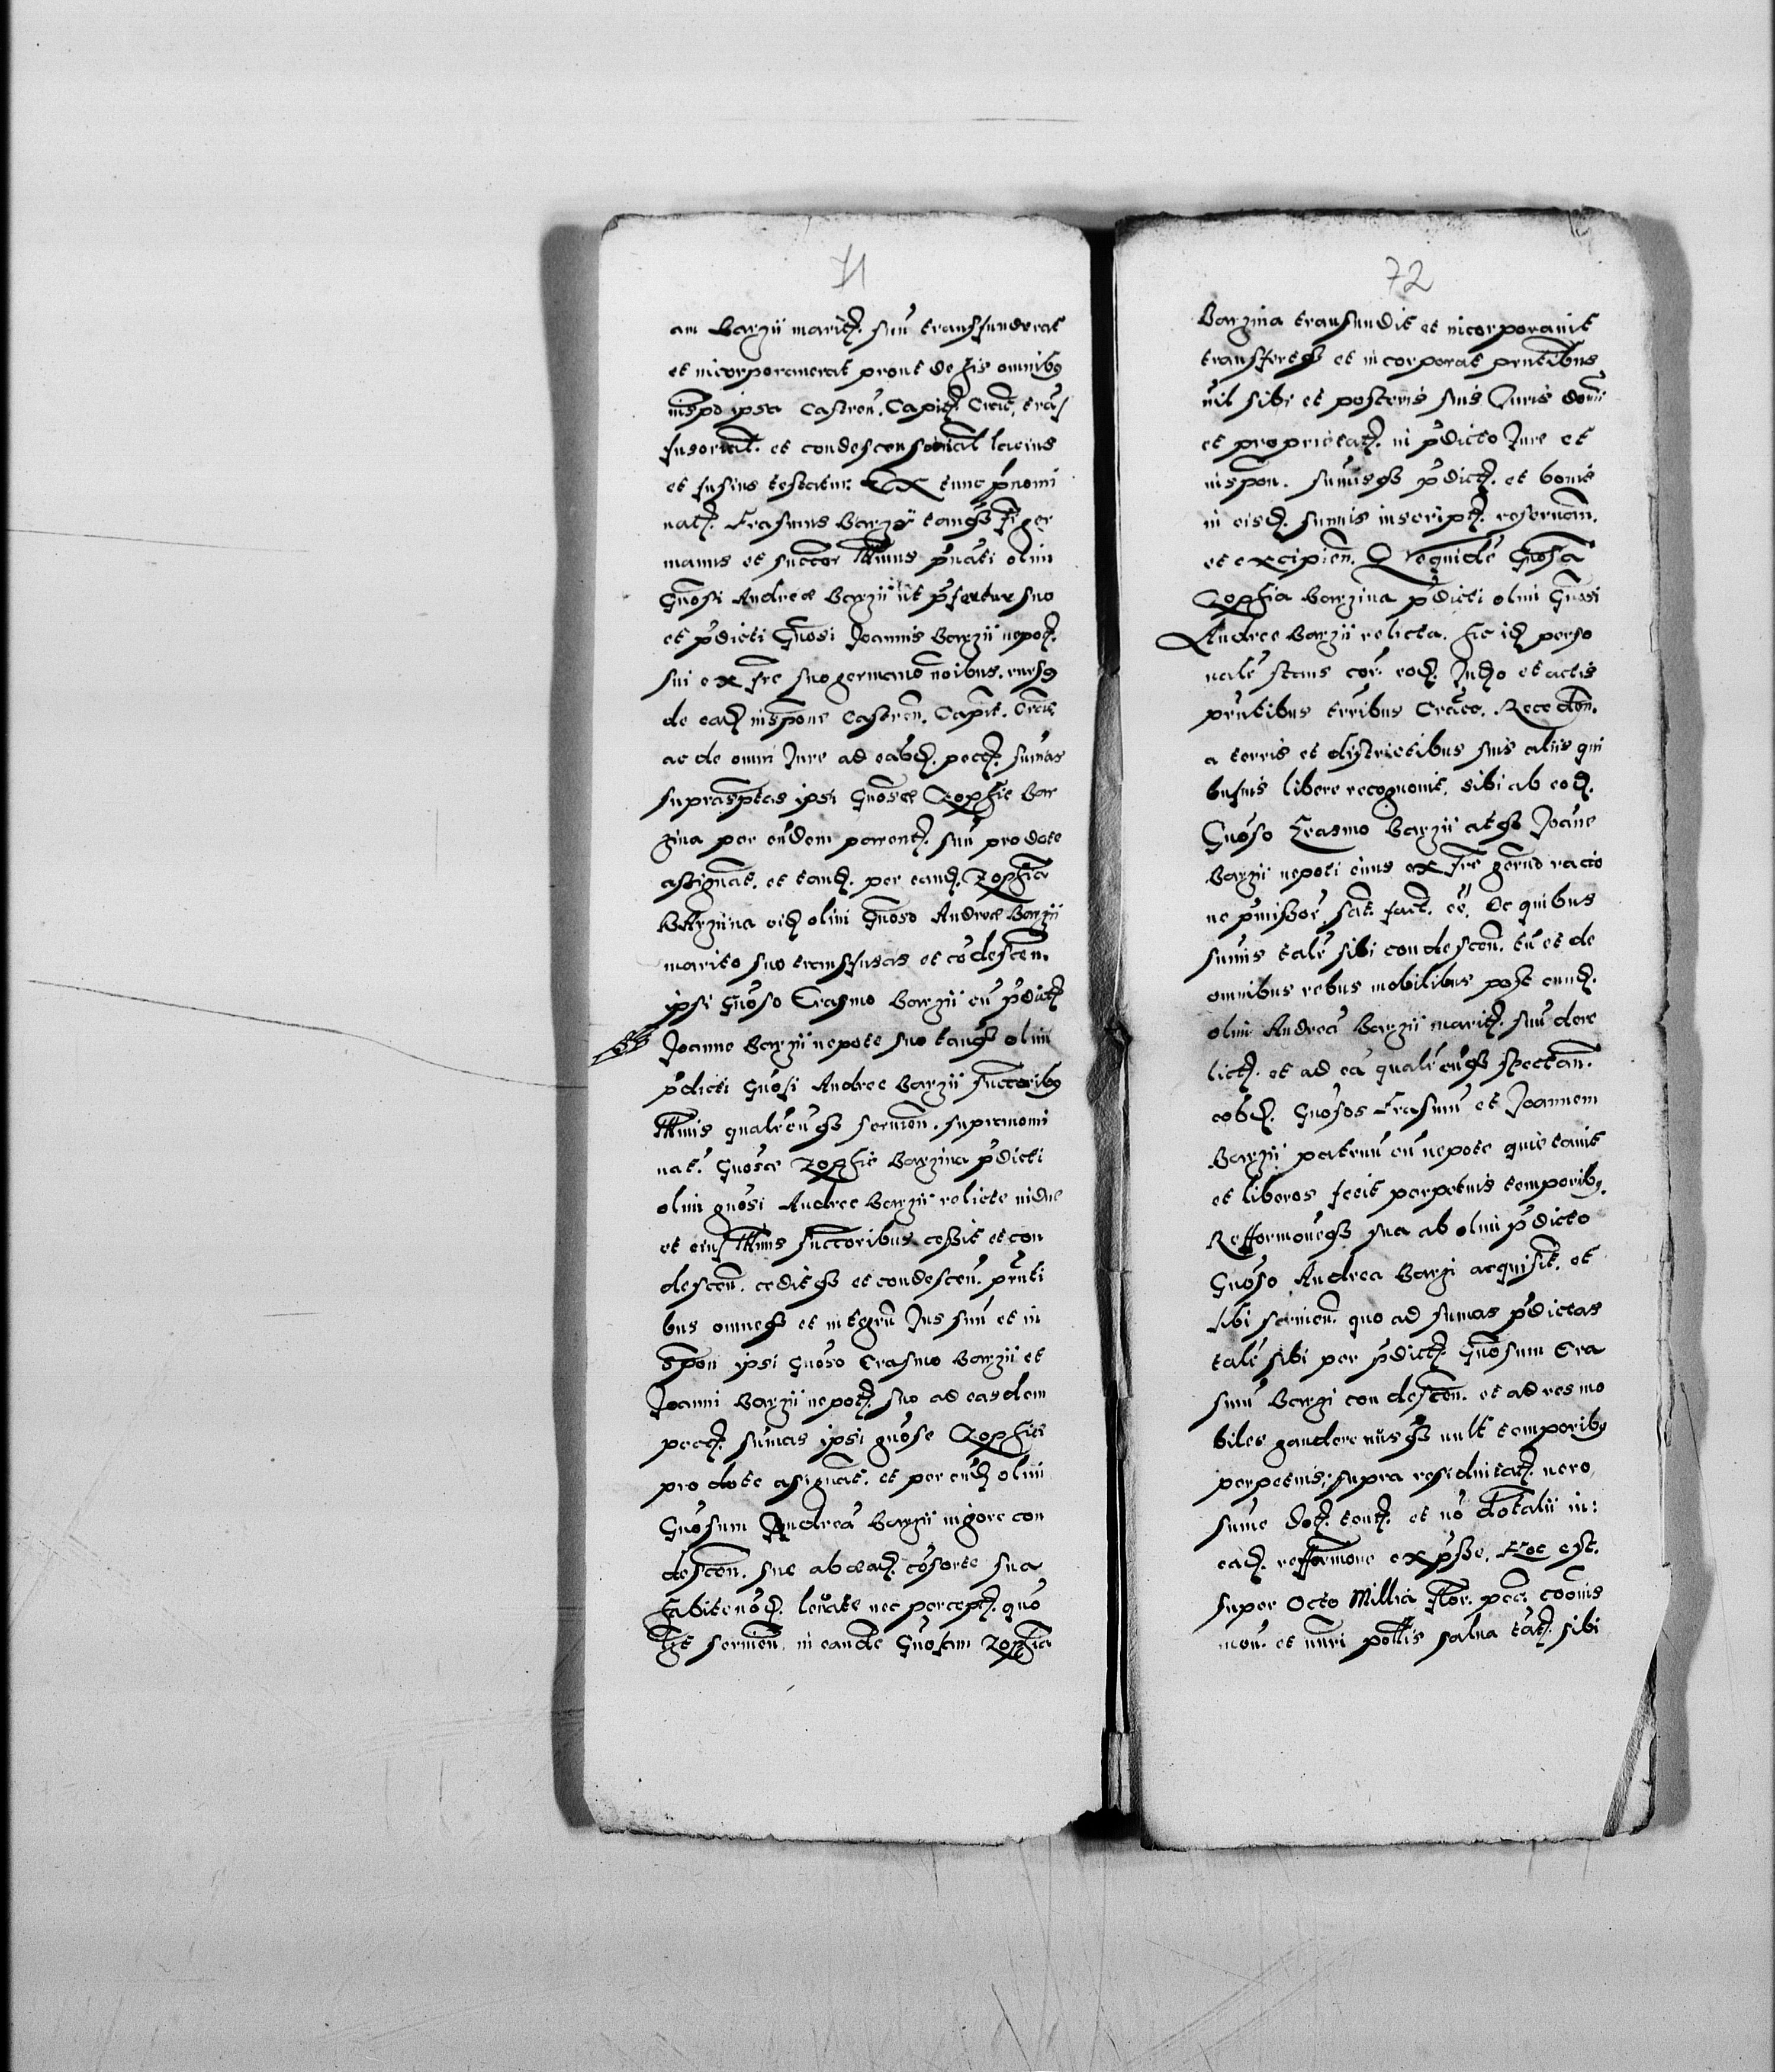 71
am Barzii marit. suu transfunderat
et incorporauerat prout de his omnibus
inspo ipsa Castren. Capit. Crac. tras
fusorial. et condescensorial lacius
et fusius testatur. Ex tunc pnomi
nat. Erasmus Barzii tanqz fr ger
manus et succor ttimus pnati olim
Gnosi Andreae Barzii ut pfertur suo
et pdicti Gnosi Joannis Barzii nepot.
sui ex fre suo germano noibus, rursq
de ead inspone Castren. Capit. Crac.
ac de omni Jure ad easd. pect. sumas
suprasptas ipsi Gnosae Zophie Bar
zina per eudem parent. suu pro dote
assignat. et tand. per eand. Zophia
Barziina eid olim Gnoso Andreae Barzii
marito suo transfusas et codescen.
ipsi Gnoso Erasmo Barzii cu pdict
Joanne Barzii nepote suo tanqz olim
pdicti Gnosi Andree Barzii succoribq
ttimis qualecuqz seruien. supranomi
nat. Gnosae Zophie Barzina pdicti
olim gnosi Andree Barzii relicte vidue
et eius ttimis succoribus cessit et con
descen. ceditqz et condescen. pnti
bus omneqz et integru Jus suu et in
spon ipsi Gnoso Erasmo Barzii et
Joanni Barzii nepot. suo ad easdem
pect. sumas ipsi gnose Zophie
pro dote asignat. et per eud olim
Gnosum Andrea Barzii vigore con
descen. sue ab ead. cosorte sua
habite no d. leuate nec percept. quo
lt seruien. in eande Gnosam Zophia
72
Barzina transfundit et incorporauit
transfertqz et incorporat pntibus,
nil sibi et posteris suis Juris domi
et proprietat. in pdicto Jure et
inspon. sumisqz pdict. et bonis
in eisd. sumis inscript. reseruan.
et excipien. Que quide Gnosa
Zophia Barzina pdicti olim Gnosi
Andree Barzii relicta. hic id perso
nalr stans cor. eod. Judo et actis
pntibus trribus Craco. Recedn.
a terris et districtibus suis aliis qui
busuis libere recognouit, sibi ab eod.
Gnoso Erasmo Barzii atqz Joane
Barzii nepoti eius ex fre germo racio
ne pmissor. sat. fact. ee. De quibus
sumis tale sibi condescen. tu et de
omnibus rebus mobilibus post eund.
olim Andrea Barzii marit. suu dere
lict. et ad ea qualecuqz spectan.
eosd. Gnosos Erasmu et Joannem
Barzii patruu cu nepote quietauit
et liberos fecit perpetuis temporibq.
Refformoneqz sua ab olim pdicto
Gnoso Andrea Barzi acquisit. et
sibi seruien. quo ad sumas pdictas
tale sibi per pdict. Gnosum Era
smu Barzi condescen. et ad res mo
biles gaudere nusqz vult temporibq
perpetuis; supra residuitat. uero
sume dot. tant. et no dotalii in:
ead. refformone expsse. Hoc est.
super Octo Millia flor. pec. cois
mon. et nuri pollis salua tat. sibi